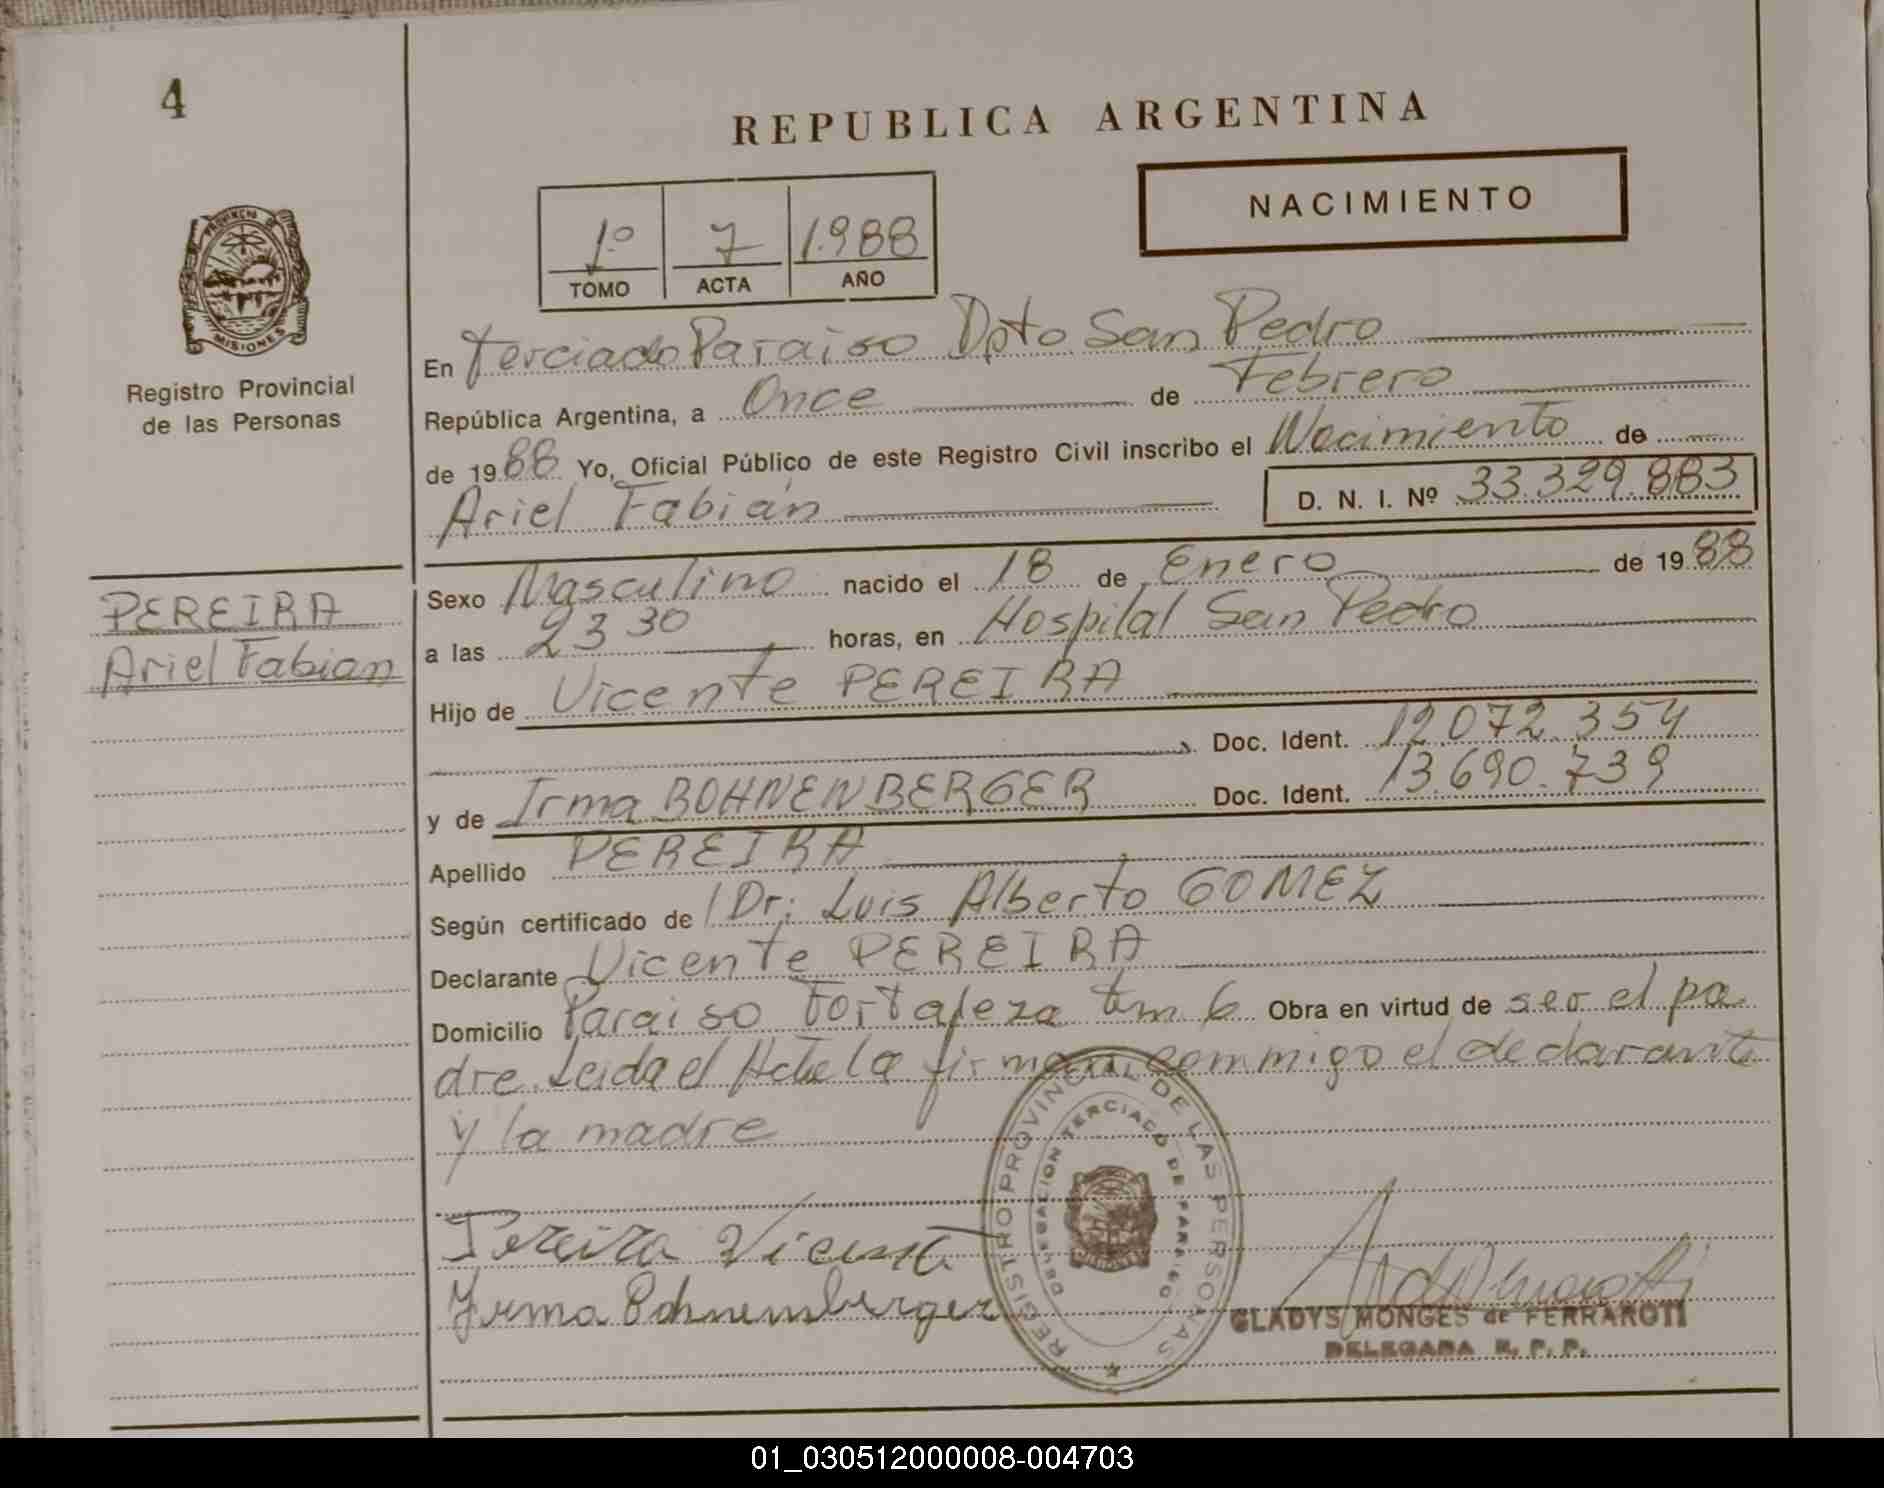 4
REPUBLICA ARGENTINA
NACIMIENTO
1º 7 1.988
TOMO ACTA AÑO
PROVINCIA DE
MISIONES
Registro Provincial
de las Personas
En Terciado Paraiso Dpto San Pedro
República Argentina, a Once de Febrero
de 1988 Yo, Oficial Público de este Registro Civil inscribo el Nacimiento de
Ariel Fabián D. N. I. Nº 33.329.883
PEREIRA
Ariel Fabian
Sexo Masculino nacido el 18 de Enero de 1988
a las 23 30 horas, en Hospital San Pedro
Hijo de Vicente PEREIRA
Doc. Ident. 12.072.354
y de Irma BOHNENBERGER Doc. Ident. 13.690.739
Apellido PEREIRA
Según certificado de Dr: Luis Alberto GOMEZ
Declarante Vicente PEREIRA
Domicilio Paraiso Fortaleza km 6 Obra en virtud de ser el pa
dre. Leida el Acta la firman commigo el declarante
y la madre
Pereira Vicente
Yrma Bohnemberger
REGISTRO PROVINCIAL DE LAS PERSONAS
DELEGACION TERCIADO DE PARAISO
MISIONES
GLADYS MONGES de FERRAROTI
DELEGADA R. P. P.
01_030512000008-004703